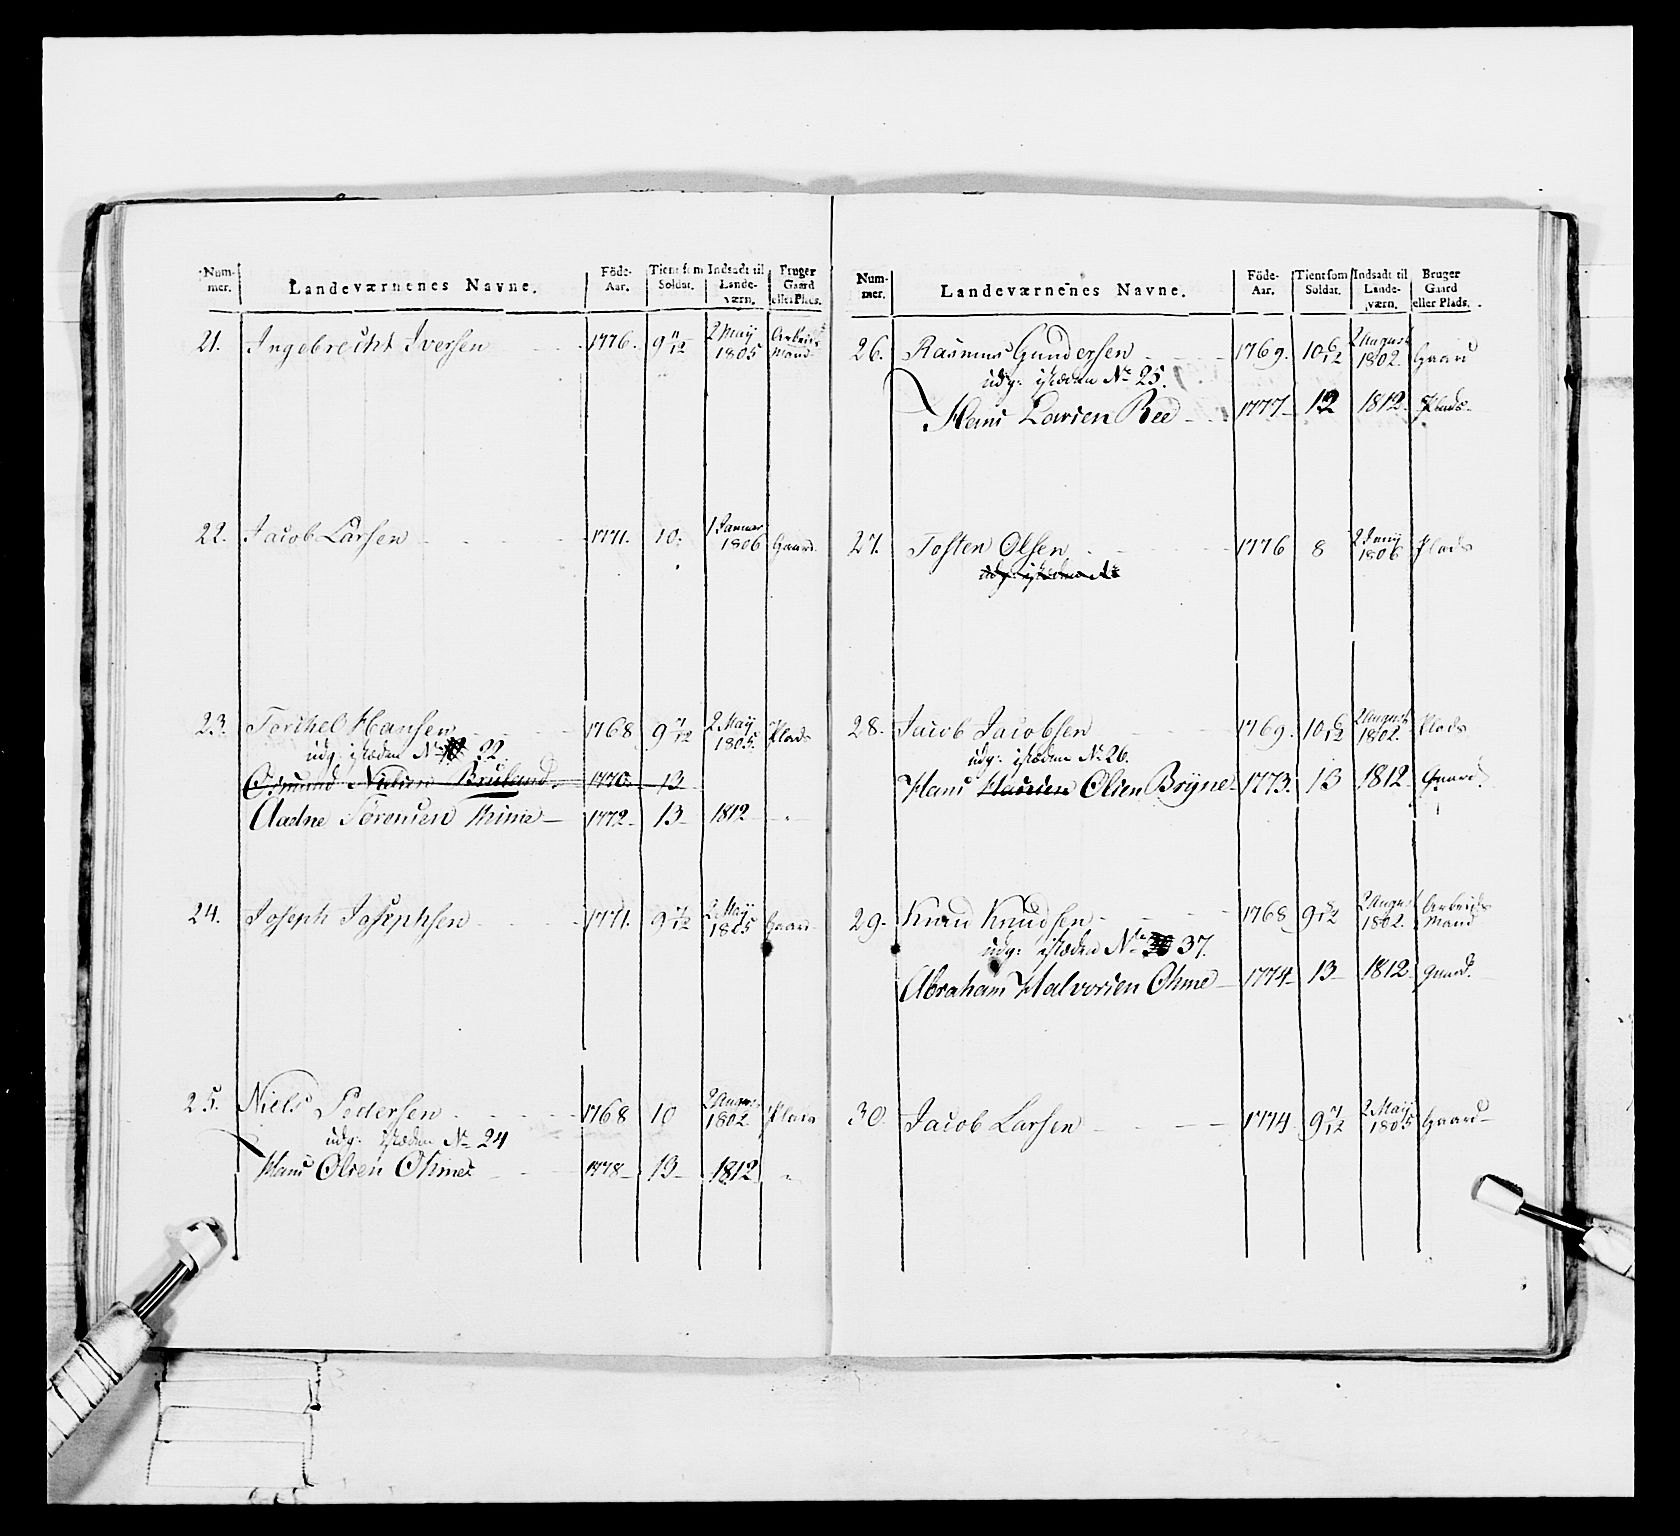 Num-mer. Landeværnenes Navne. Föde-Aar. Tient som Soldat. Indsadt til Lande-værn. Bruger Gaard eller Plads.
21. Ingebrecht Iversen 1776. 9 11/12 2 Maij 1805 Arbeids Mand
22. Jacob Larsen 1771. 10. 1 Januar 1806 Gaard
23. Torchel Hansen 1768 9 7/12 2 Maij 1805. Plads
udg: istæden No 22.
Osmund Nielsen Bruland. 1770 13
Aadne Sörensen Thime 1772 13 1812 "
24. Joseph Josephsen 1771. 9 7/12 2 Maij 1805 Gaard
25. Niels Pedersen 1768 10 2 August 1802. Plads
udg: istæden No 24
Hans Olsen Ohme 1778 13 1812 "
Num-mer. Landeværnenes Navne. Föde-Aar. Tient som Soldat. Indsadt til Lande-værn. Bruger Gaard eller Plads.
26. Rasmus Gundersen 1769. 10 6/12 2 August 1802. Gaard
udg: istæden No 25.
Hans Larsen Ree 1777 12 1812. Plads
27. Tosten Olsen 1776 8 2 Junij 1806 Plads
udg: istæden No
28. Jacob Jacobsen 1769. 10 6/12 2 August 1802. Plads
udg: istæden No 26.
Hans Hansen Olsen Bryne 1773. 13 1812 Gaard.
29. Knud Knudsen 1768 9 8/12 2 August 1802. Arbeids Mand
udg: istæden No 37.
Abraham Halvorsen Ohme 1774 13 1812 gaard.
30. Jacob Larsen 1774. 9 7/12 2 Maij 1805 Gaard